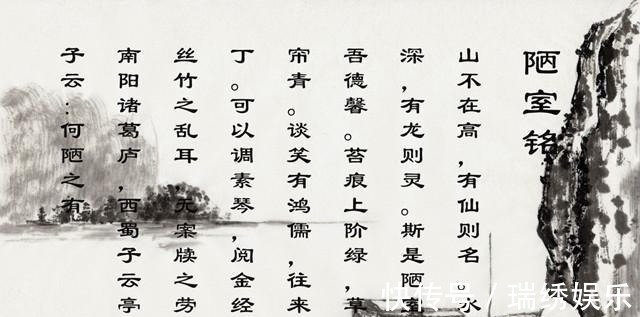 陋室铭
山不在高，有仙则名。水
深，有龙则灵。斯是陋室
吾德馨。苔痕上阶绿，草
帘青。谈笑有鸿儒，往来
丁。可以调素琴，阅金经
丝竹之乱耳 无案牍之劳
南阳诸葛庐，西蜀子云亭
子云：何陋之有
快传号／瑞绣娱乐